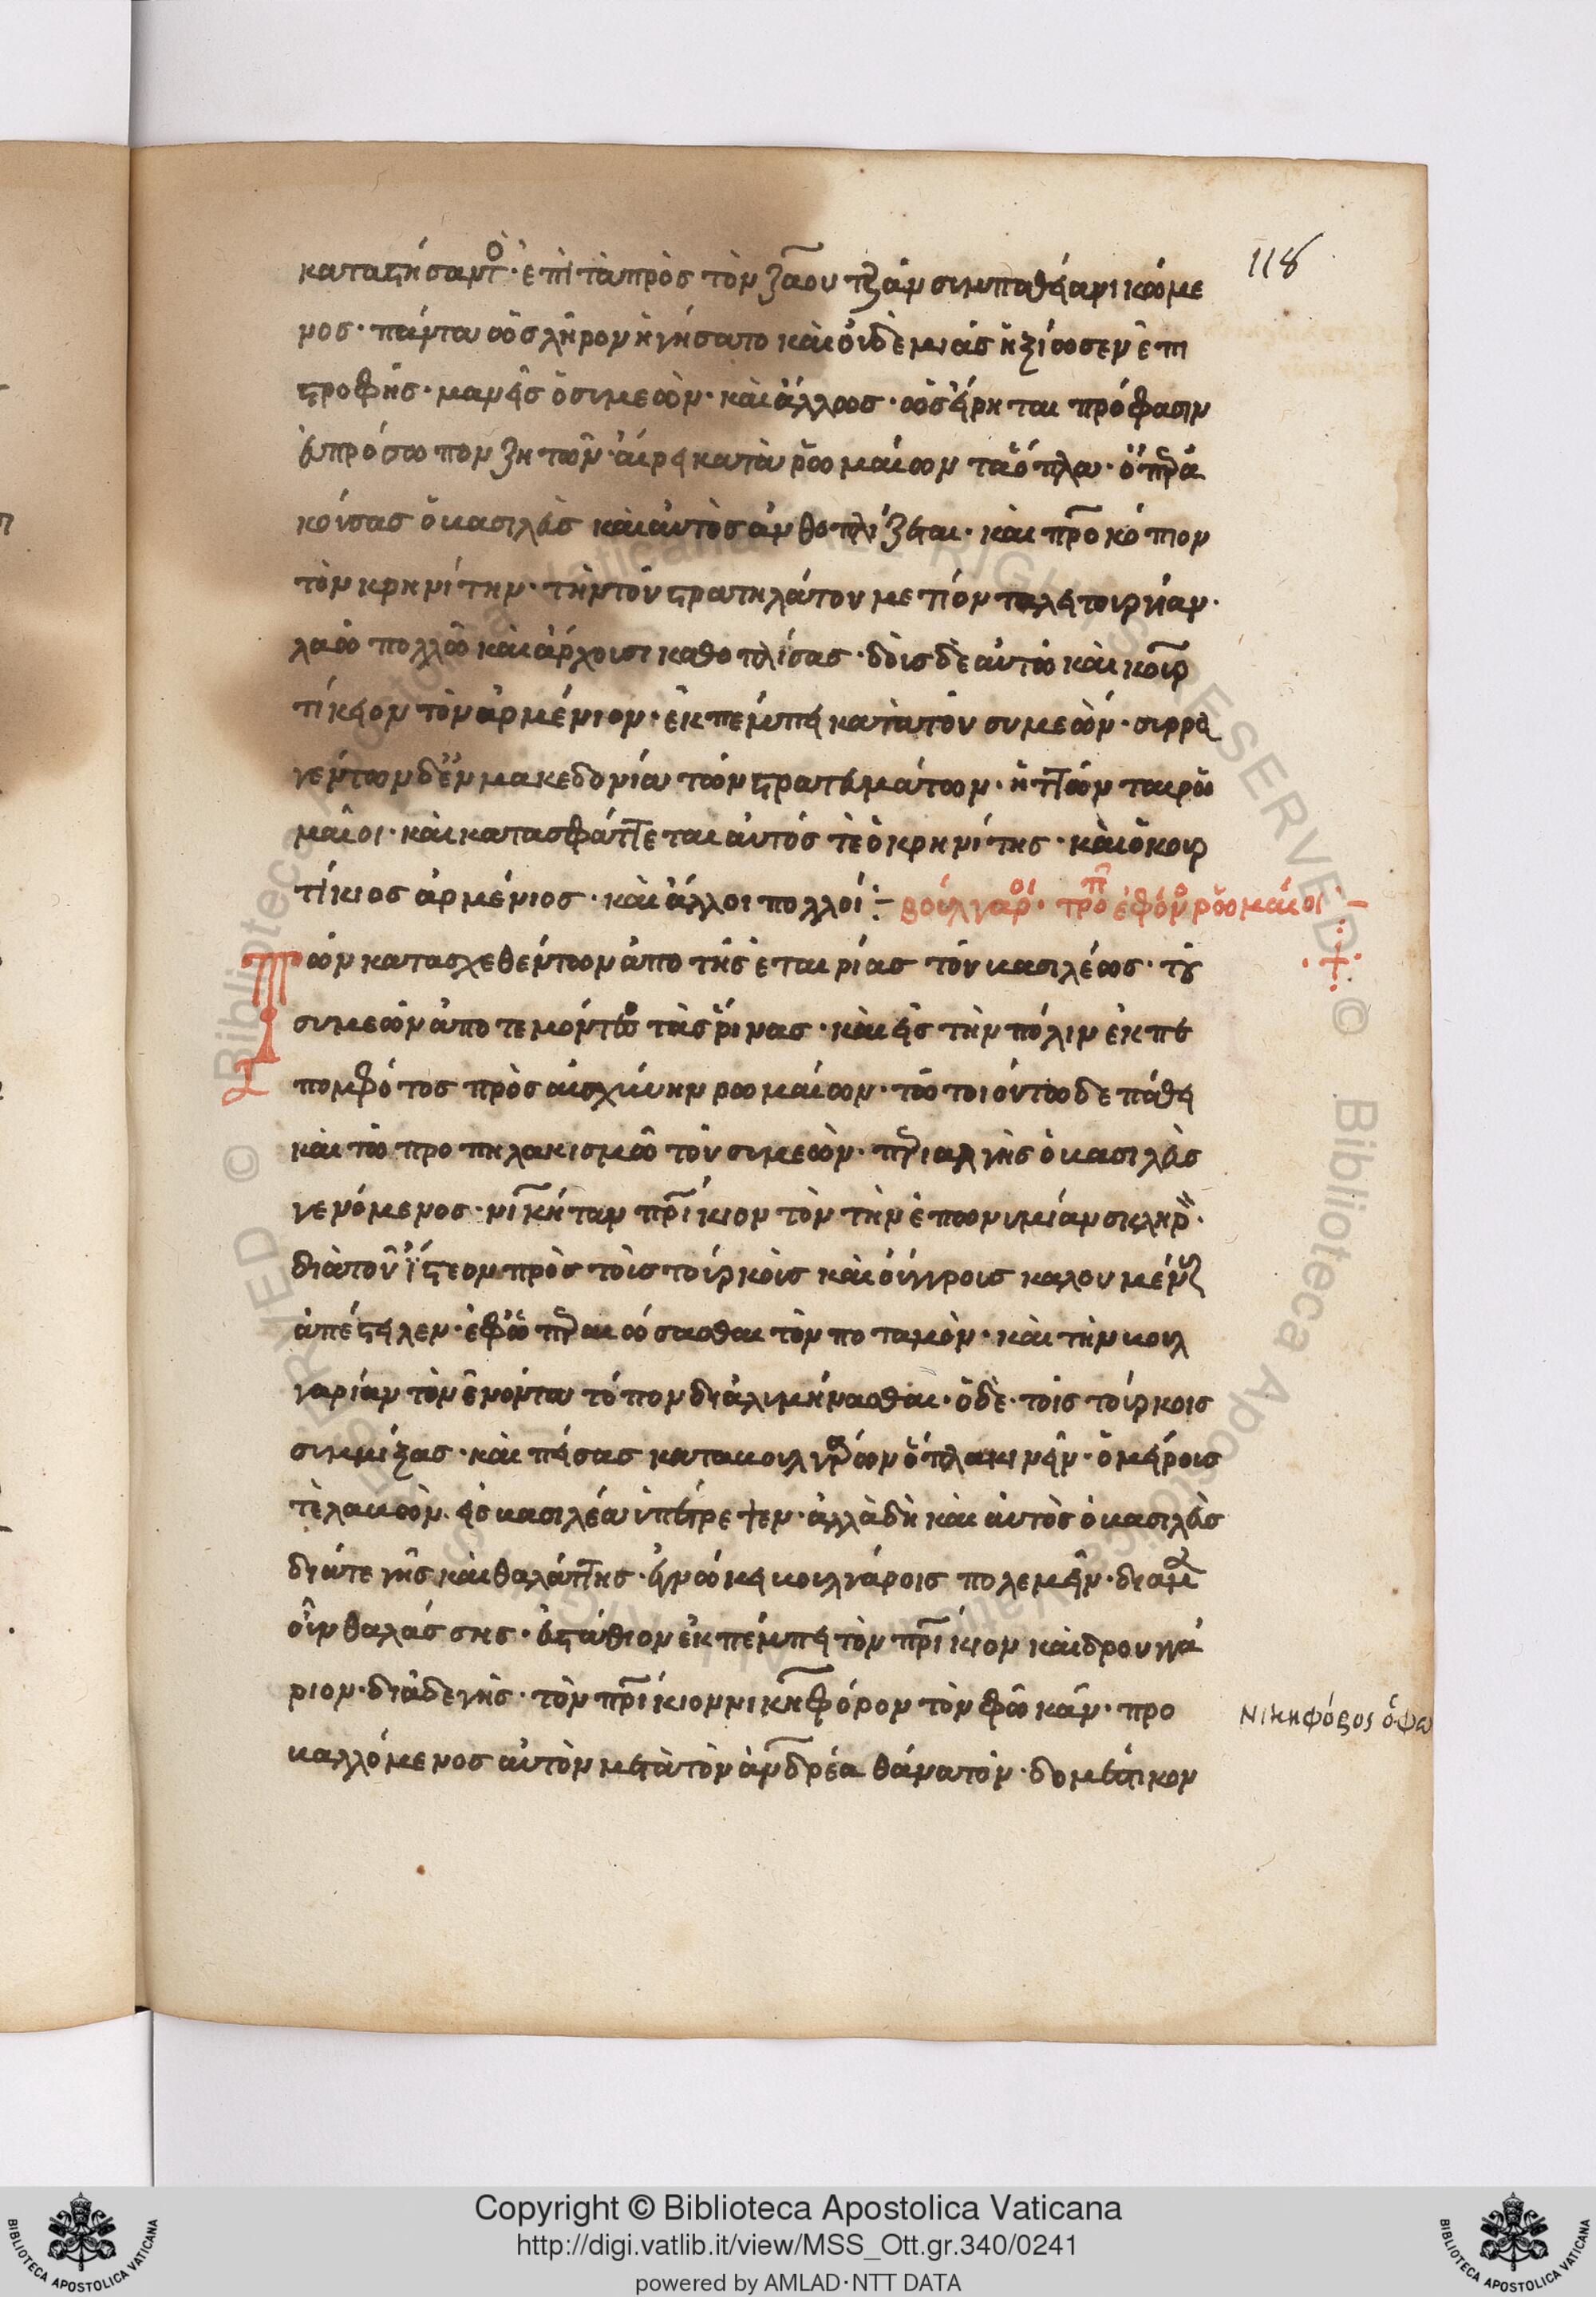 118
καταστήσαντο. ἐπὶ τὰ πρὸς τὸν ζάου τζάν συμπαθεία νικώμε
νος. πάντα ὡς λῆρον ἡγήσατο καὶ οὐδὲ μιᾶς ἠξίωσεν ἐπι
στροφῆς. μανεὶς ὁ συμεὼν. καὶ ἄλλως. ὡς εἴρηται πρόφασιν
εὐπρόσωπον ζητῶν. αἴρει κατὰ ῥωμαίων τὰ ὅπλα. ὅπερ ἀ
κούσας ὁ βασιλεὺς καὶ αὐτὸς ἀνθοπλίζεται. καὶ προκόπιον
τὸν κρηνίτην. τὴν τοῦ στρατηλάτου μετιόντα λειτουργίαν.
λαῶ πολλῶ καὶ ἄρχουσι καθοπλίσας. δοὺς δὲ αὐτῶ καὶ κουρ
τίκειον τὸν ἀρμένιον. ἐκπέμπει κατὰ τοῦ συμεών. συρρα
γέντων δὲ ἐν μακεδονία τῶν στρατευμάτων. ἡττῶνται ῥω
μαῖοι. καὶ κατασφάττεται αὐτός τε ὁ κρηνίτης. καὶ ὁ κουρ
τίκιος ἀρμένιος. καὶ ἄλλοι πολλοί :-
Τῶν κατασχεθέντων ἀπὸ τῆς ἑταιρίας τοῦ βασιλέως. τοῦ
συμεὼν ἀποτεμόντος τὰς ῥίνας. καὶ εἰς τὴν πόλιν ἐκπε
πομφότος πρὸς αἰσχύνην ῥωμαίων. τῶ τοιούτω δὲ πάθει
καὶ τῶ προπηλακισμῶ τοῦ συμεών. περιαλγὴς ὁ βασιλεὺς
γενόμενος. νικήταν πατρίκιον τὸν τὴν ἐπωνυμίαν σκληρὸν.
διὰ τοῦ ἴστρου πρὸς τοῖς τούρκοις καὶ οὔγγροις καλουμένοις
ἀπέστειλεν. ἐφῶ περαιώσασθαι τὸν ποταμὸν. καὶ τὴν βουλ
γαρίαν τὸν ἐνόντα τόπον διαλυμήνασθαι. ὁ δὲ. τοῖς τούρκοις
συμμίξας. καὶ πείσας κατὰ βουλγάρων ὅπλα κινεῖν. ὁμήρους
τε λαβὼν. εἰς βασιλέα ὑπέστρεψεν. ἀλλὰ δὴ καὶ αὐτὸς ὁ βασιλεὺς
διά τε γῆς καὶ θαλάττης. ἔγνώκει βουλγάροις πολεμεῖν. διὰ μὲν
οὖν θαλάσσης. εὐστάθιον ἐκπέμπει τὸν πατρίκιον καὶ δρουγγά
ριον. διὰ δὲ γῆς. τὸν πατρίκιον νικηφόρον τὸν φωκᾶν. προ
βαλλόμενος αὐτὸν μετὰ τὸν ἀνδρέα θάνατον. δομέστικον
Νικηφόρος ὁ φω
Copyright © Biblioteca Apostolica Vaticana
http://digi.vatlib.it/view/MSS_Ott.gr.340/0241
powered by AMLAD·NTT DATA